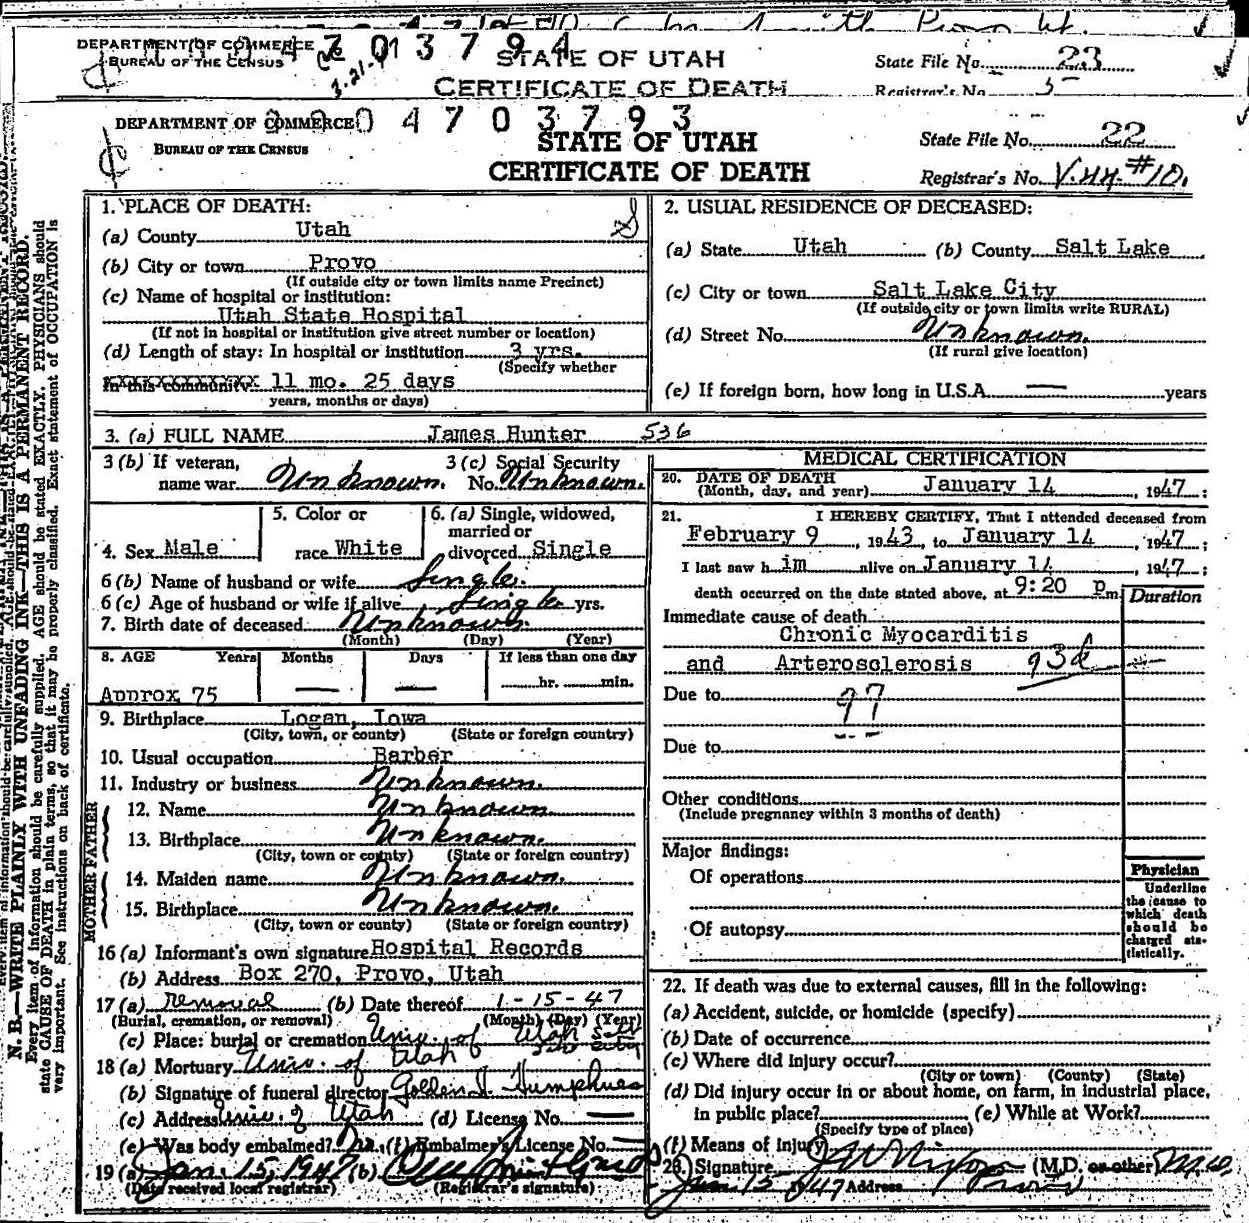 DEPARTMENT OF COMMERCE
BUREAU OF THE CENSUS
3-21-
STATE OF UTAH
CERTIFICATE OF DEATH
State File No. 23
Registrar's No. 5
DEPARTMENT OF COMMERCE
BUREAU OF THE CENSUS
04703793
STATE OF UTAH
CERTIFICATE OF DEATH
State File No. 22
Registrar's No. V.44 #10.
N. B.—WRITE PLAINLY WITH UNFADING INK—THIS IS A PERMANENT RECORD.
Every item of information should be carefully supplied. AGE should be stated EXACTLY. PHYSICIANS should
state CAUSE OF DEATH in plain terms, so that it may be properly classified. Exact statement of OCCUPATION is
very important. See instructions on back of certificate.
1. PLACE OF DEATH:
(a) County Utah
(b) City or town Provo
(If outside city or town limits name Precinct)
(c) Name of hospital or institution:
Utah State Hospital
(If not in hospital or institution give street number or location)
(d) Length of stay: In hospital or institution 3 yrs.
(Specify whether
In this community 11 mo. 25 days
years, months or days)
2. USUAL RESIDENCE OF DECEASED:
(a) State Utah (b) County Salt Lake
(c) City or town Salt Lake City
(If outside city or town limits write RURAL)
(d) Street No. Unknown.
(If rural give location)
(e) If foreign born, how long in U.S.A. — years
3. (a) FULL NAME James Hunter 536
3 (b) If veteran, name war Unknown.
3 (c) Social Security No. Unknown.
4. Sex Male
5. Color or race White
6. (a) Single, widowed, married or divorced Single
6 (b) Name of husband or wife Single.
6 (c) Age of husband or wife if alive Single yrs.
7. Birth date of deceased Unknown.
(Month) (Day) (Year)
8. AGE Years Months Days If less than one day
Approx 75 — — hr. min.
9. Birthplace Logan, Iowa
(City, town, or county) (State or foreign country)
10. Usual occupation Barber
11. Industry or business Unknown.
FATHER
12. Name Unknown.
13. Birthplace Unknown.
(City, town or county) (State or foreign country)
MOTHER
14. Maiden name Unknown.
15. Birthplace Unknown.
(City, town or county) (State or foreign country)
16 (a) Informant's own signature Hospital Records
(b) Address Box 270, Provo, Utah
17 (a) removal (b) Date thereof 1-15-47
(Burial, cremation, or removal) (Month) (Day) (Year)
(c) Place: burial or cremation Univ. of Utah
18 (a) Mortuary Univ. of Utah
(b) Signature of funeral director
(c) Address Univ. of Utah (d) License No. —
(e) Was body embalmed? No. (f) Embalmer's License No. —
19 (a) Jan. 15, 1947 (b)
(Date received local registrar) (Registrar's signature)
MEDICAL CERTIFICATION
20. DATE OF DEATH
(Month, day, and year) January 14, 1947;
21. I HEREBY CERTIFY, That I attended deceased from
February 9, 1943, to January 14, 1947;
I last saw him alive on January 14, 1947;
death occurred on the date stated above, at 9:20 Pm.
Duration
Immediate cause of death
Chronic Myocarditis
and Arterosclerosis 93d
Due to 97
Due to
Other conditions
(Include pregnancy within 3 months of death)
Major findings:
Of operations
Of autopsy
Physician
Underline
the cause to
which death
should be
charged sta-
tistically.
22. If death was due to external causes, fill in the following:
(a) Accident, suicide, or homicide (specify)
(b) Date of occurrence
(c) Where did injury occur?
(City or town) (County) (State)
(d) Did injury occur in or about home, on farm, in industrial place,
in public place? (e) While at Work?
(Specify type of place)
(f) Means of injury
23. Signature (M.D. or other) M.D.
Jan 15 1947 Address Provo